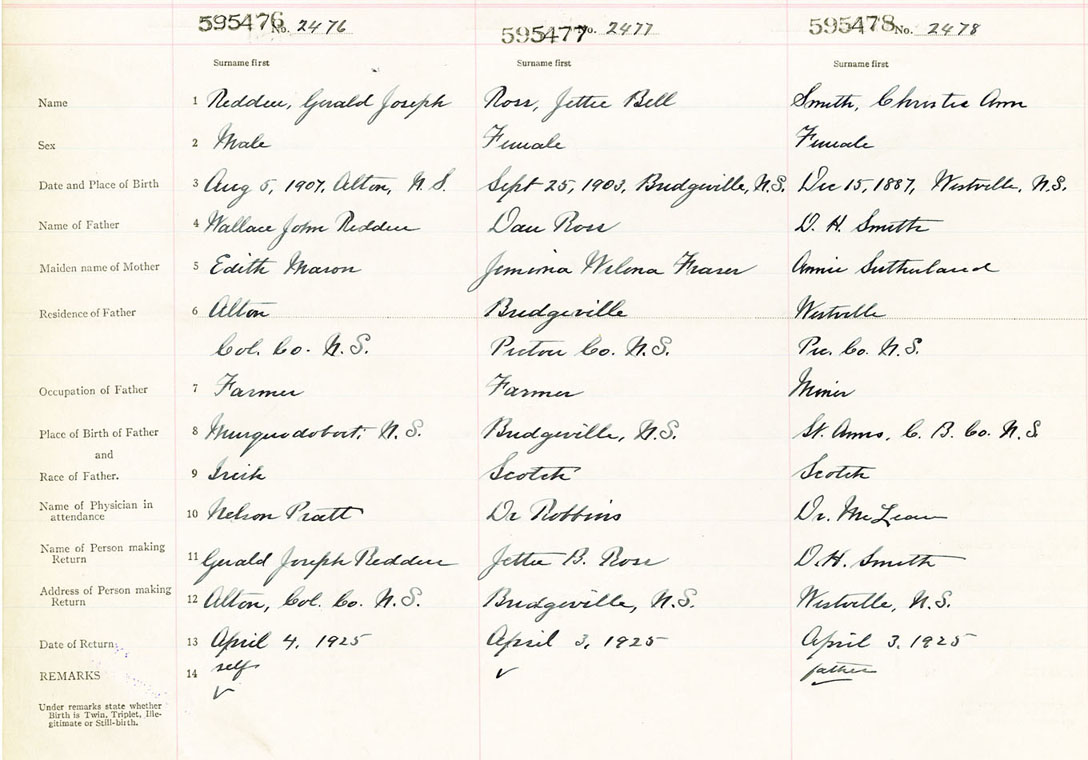 595476 No. 2476 595477 No. 2477 595478 No. 2478
Surname first Surname first Surname first
Name 1 Redden, Gerald Joseph Ross, Jettie Bell Smith, Christie Ann
Sex 2 Male Female Female
Date and Place of Birth 3 Aug 5, 1907, Alton, N.S. Sept 25, 1903, Bridgeville, N.S. Dec 15, 1887, Westville, N.S.
Name of Father 4 Wallace John Redden Dan Ross D. H. Smith
Maiden name of Mother 5 Edith Mason Jemima Wilena Fraser Annie Sutherland
Residence of Father 6 Alton Bridgeville Westville
Col. Co. N.S. Pictou Co. N.S. Pic. Co. N.S.
Occupation of Father 7 Farmer Farmer Miner
Place of Birth of Father 8 Musquodoboit, N.S. Bridgeville, N.S. St. Anns, C. B. Co. N.S.
and
Race of Father. 9 Irish Scotch Scotch
Name of Physician in
attendance 10 Nelson Pratt Dr Robbins Dr. McLean
Name of Person making
Return 11 Gerald Joseph Redden Jettie B. Ross D. H. Smith
Address of Person making
Return 12 Alton, Col. Co. N.S. Bridgeville, N.S. Westville, N.S.
Date of Return 13 April 4, 1925 April 3, 1925 April 3, 1925
REMARKS 14 self father
Under remarks state whether
Birth is Twin, Triplet, Ille-
gitimate or Still-birth.